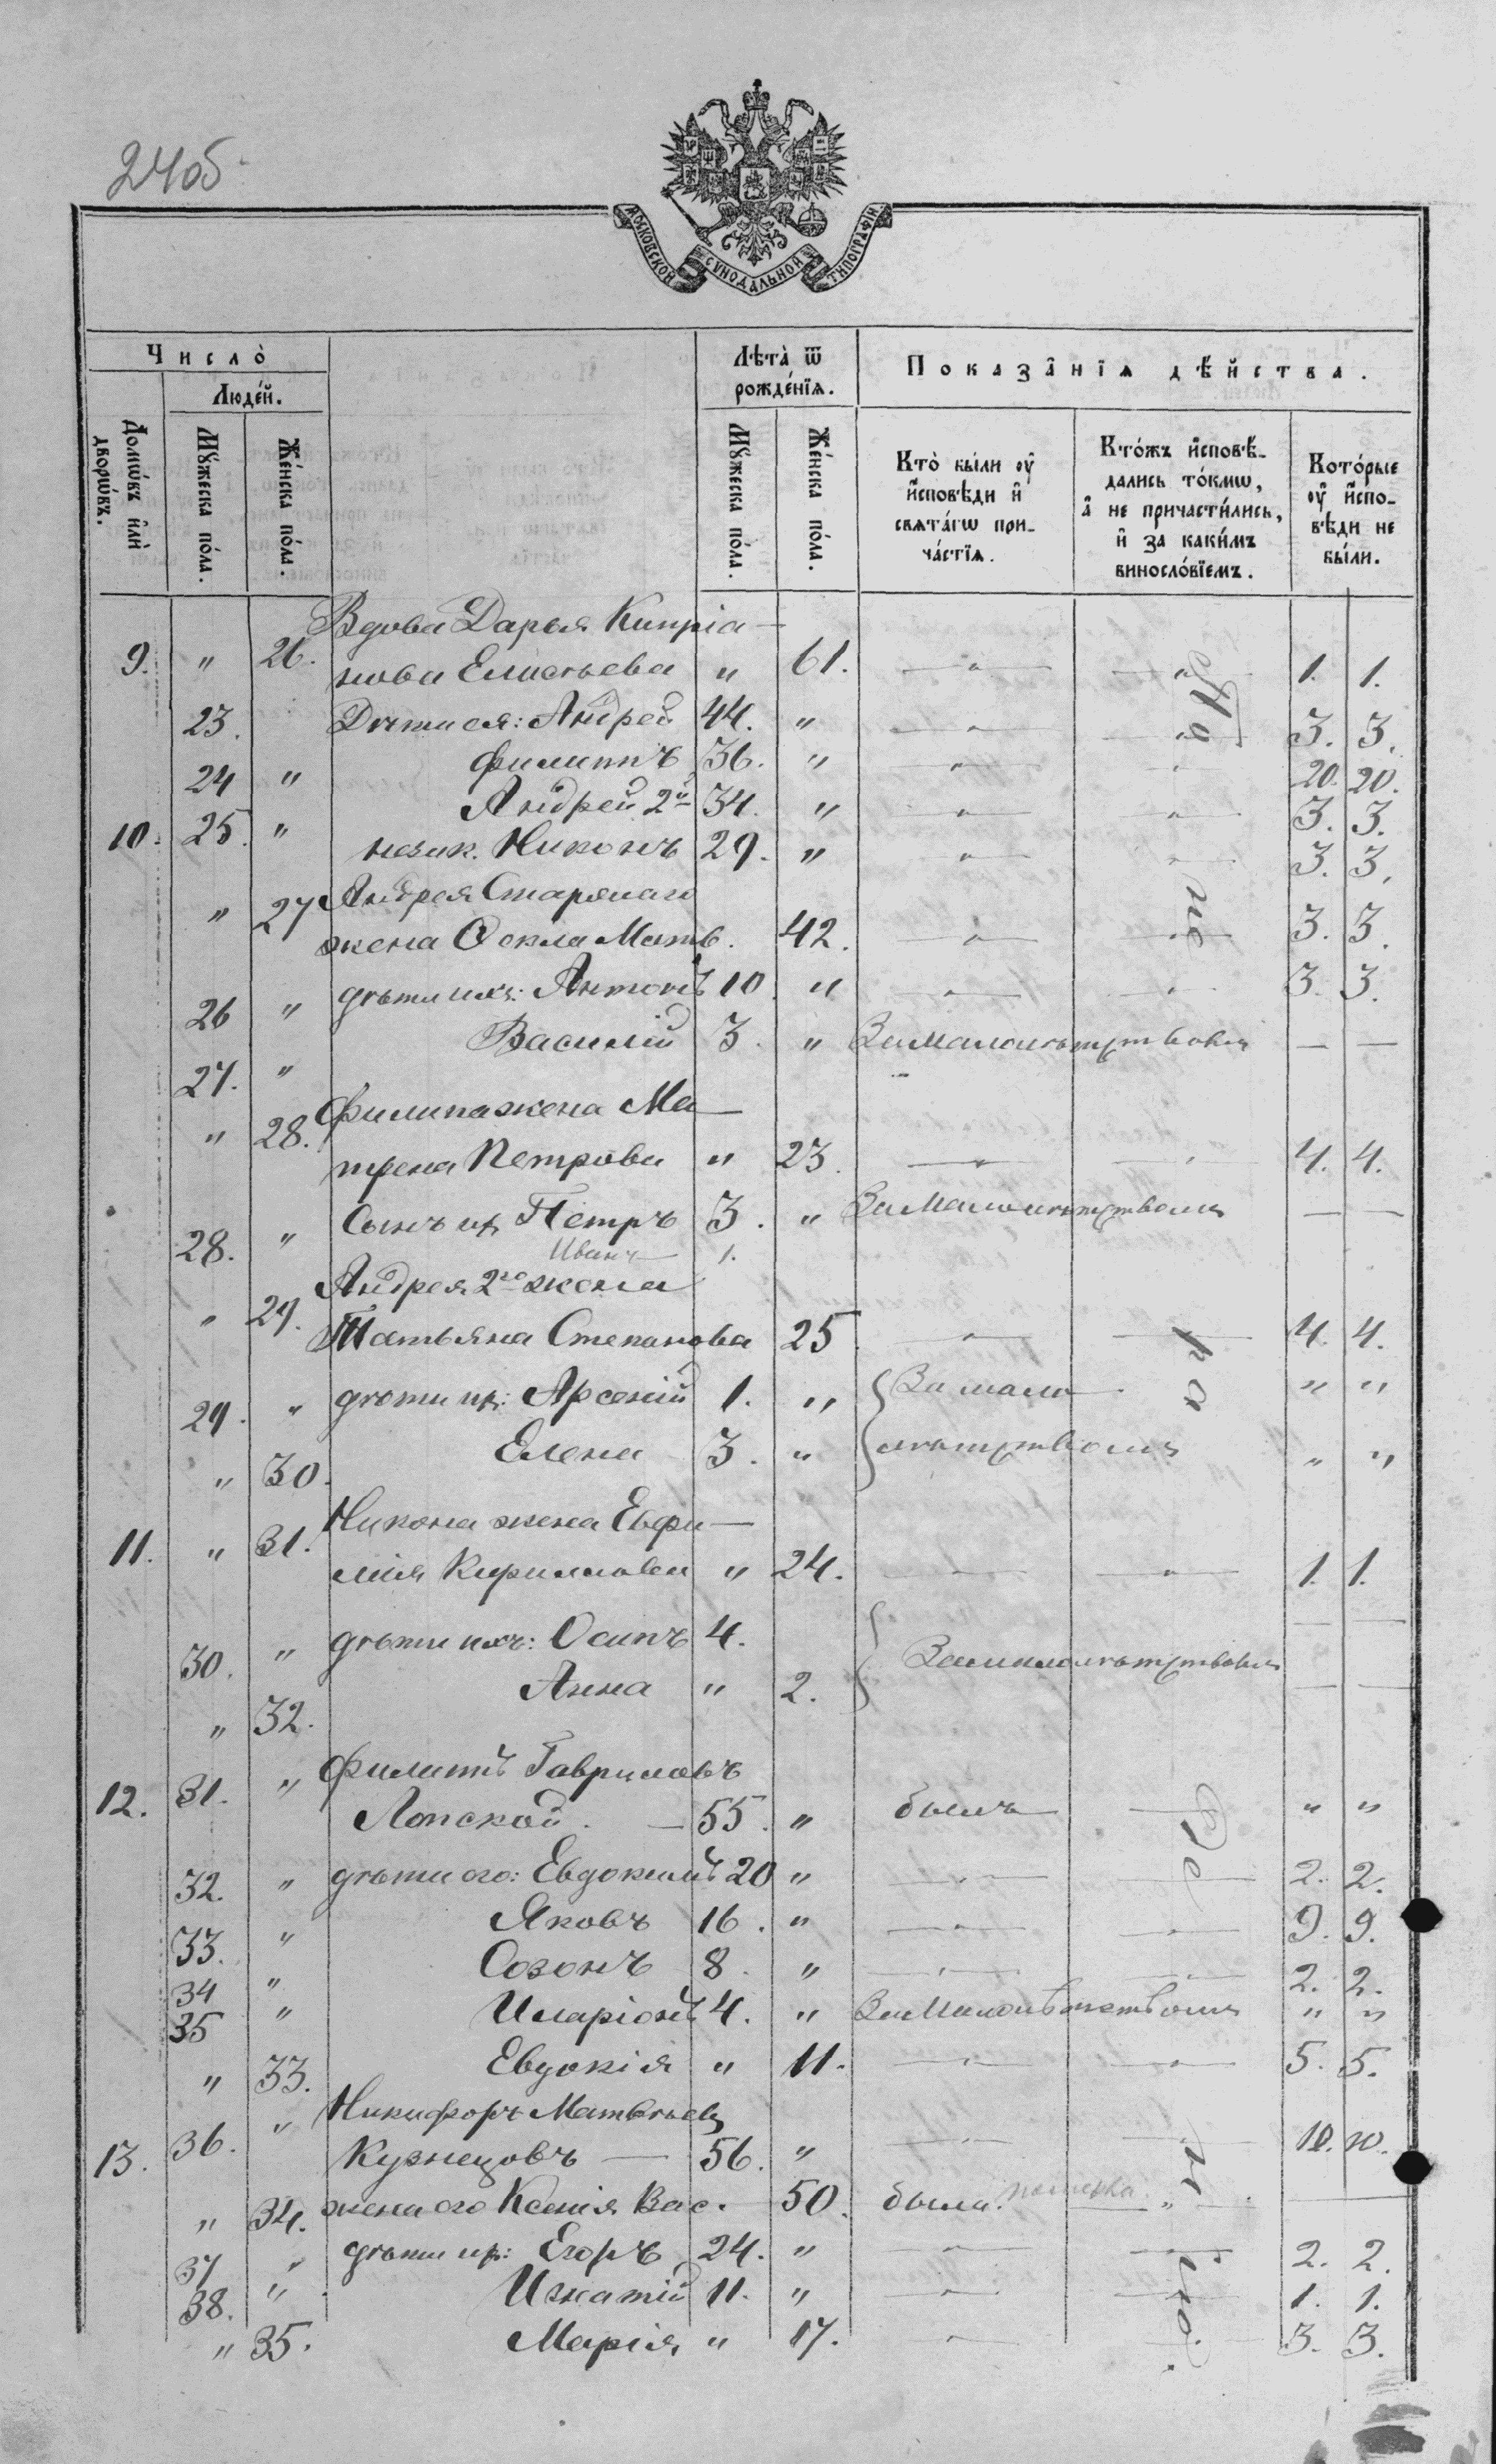 24об
МОСКОВСКОЙ СѴНОДАЛЬНОЙ ТИПОГРАФІИ
Число̀
Людей.
Домѡвъ илѝ дворѡвъ.
Мꙋжеска пола.
Женска пола.
Лѣта̀ ѿ рожденїѧ.
Мꙋжеска пола.
Женска пола.
Показанїѧ дѣйства.
Кто̀ были оу исповѣди и свѧтагѡ причастїѧ.
Ктожъ исповѣдались токмѡ, а не причастились, и за какимъ винословїемъ.
Которые оу исповѣди не были.
Вдова Дарья Кипріа-
9. " 26. нова Елисѣева " 61. " " 1. 1.
23. Дѣти ея: Андрей 44. " " " 3. 3.
24 " Филиппъ 36. " " " 20. 20.
10. 25. " Андрей 2й 34. " " " 3. 3.
незак. Никонъ 29. " " " 3. 3.
" 27 Андрея Старшаго
жена Ѳекла Матв. 42. " " 3. 3.
26 " дѣти ихъ: Антонъ 10. " " " 3. 3.
27. " Василій 3. " За малолѣтствомъ — —
" 28. Филипа жена Ма-
трена Петрова " 23. " " 4. 4.
28. " Сынъ их Петръ 3. " За малолѣтствомъ — —
Иванъ 1.
" 29. Андрея 2го жена
Татьяна Степанова 25 " " 4. 4.
29. " дѣти их: Арсеній 1. " За мало- " "
" 30. Елена 3. " лѣтствомъ " "
11. " 31. Никона жена Евфи-
мія Кирилова " 24. " " 1. 1.
30. " дѣти ихъ: Осипъ 4. — —
" 32. Анна " 2. За малолѣтствомъ — —
12. 31. " Филиппъ Гавриловъ
Лопской. — 55. " былъ — " "
32. " дѣти его: Евдокимъ 20 " " 2. 2.
33. " Яковъ 16. " " " 9. 9.
34 " Созонъ 8. " " " 2. 2.
35 " Иларіонъ 4. " За малолѣтствомъ " "
" 33. Евдокія " 11. " " 5. 5.
13. 36. " Никифоръ Матвѣев
Кузнецовъ — 56. " " " 10. 10.
" 34. жена его Ксенія Вас. 50. была. " —
37 " дѣти их: Егоръ 24. " " " 2. 2.
38. " Игнатій 11. " " " 1. 1.
" 35. Марія " 17. " 3. 3.
По
не
ра